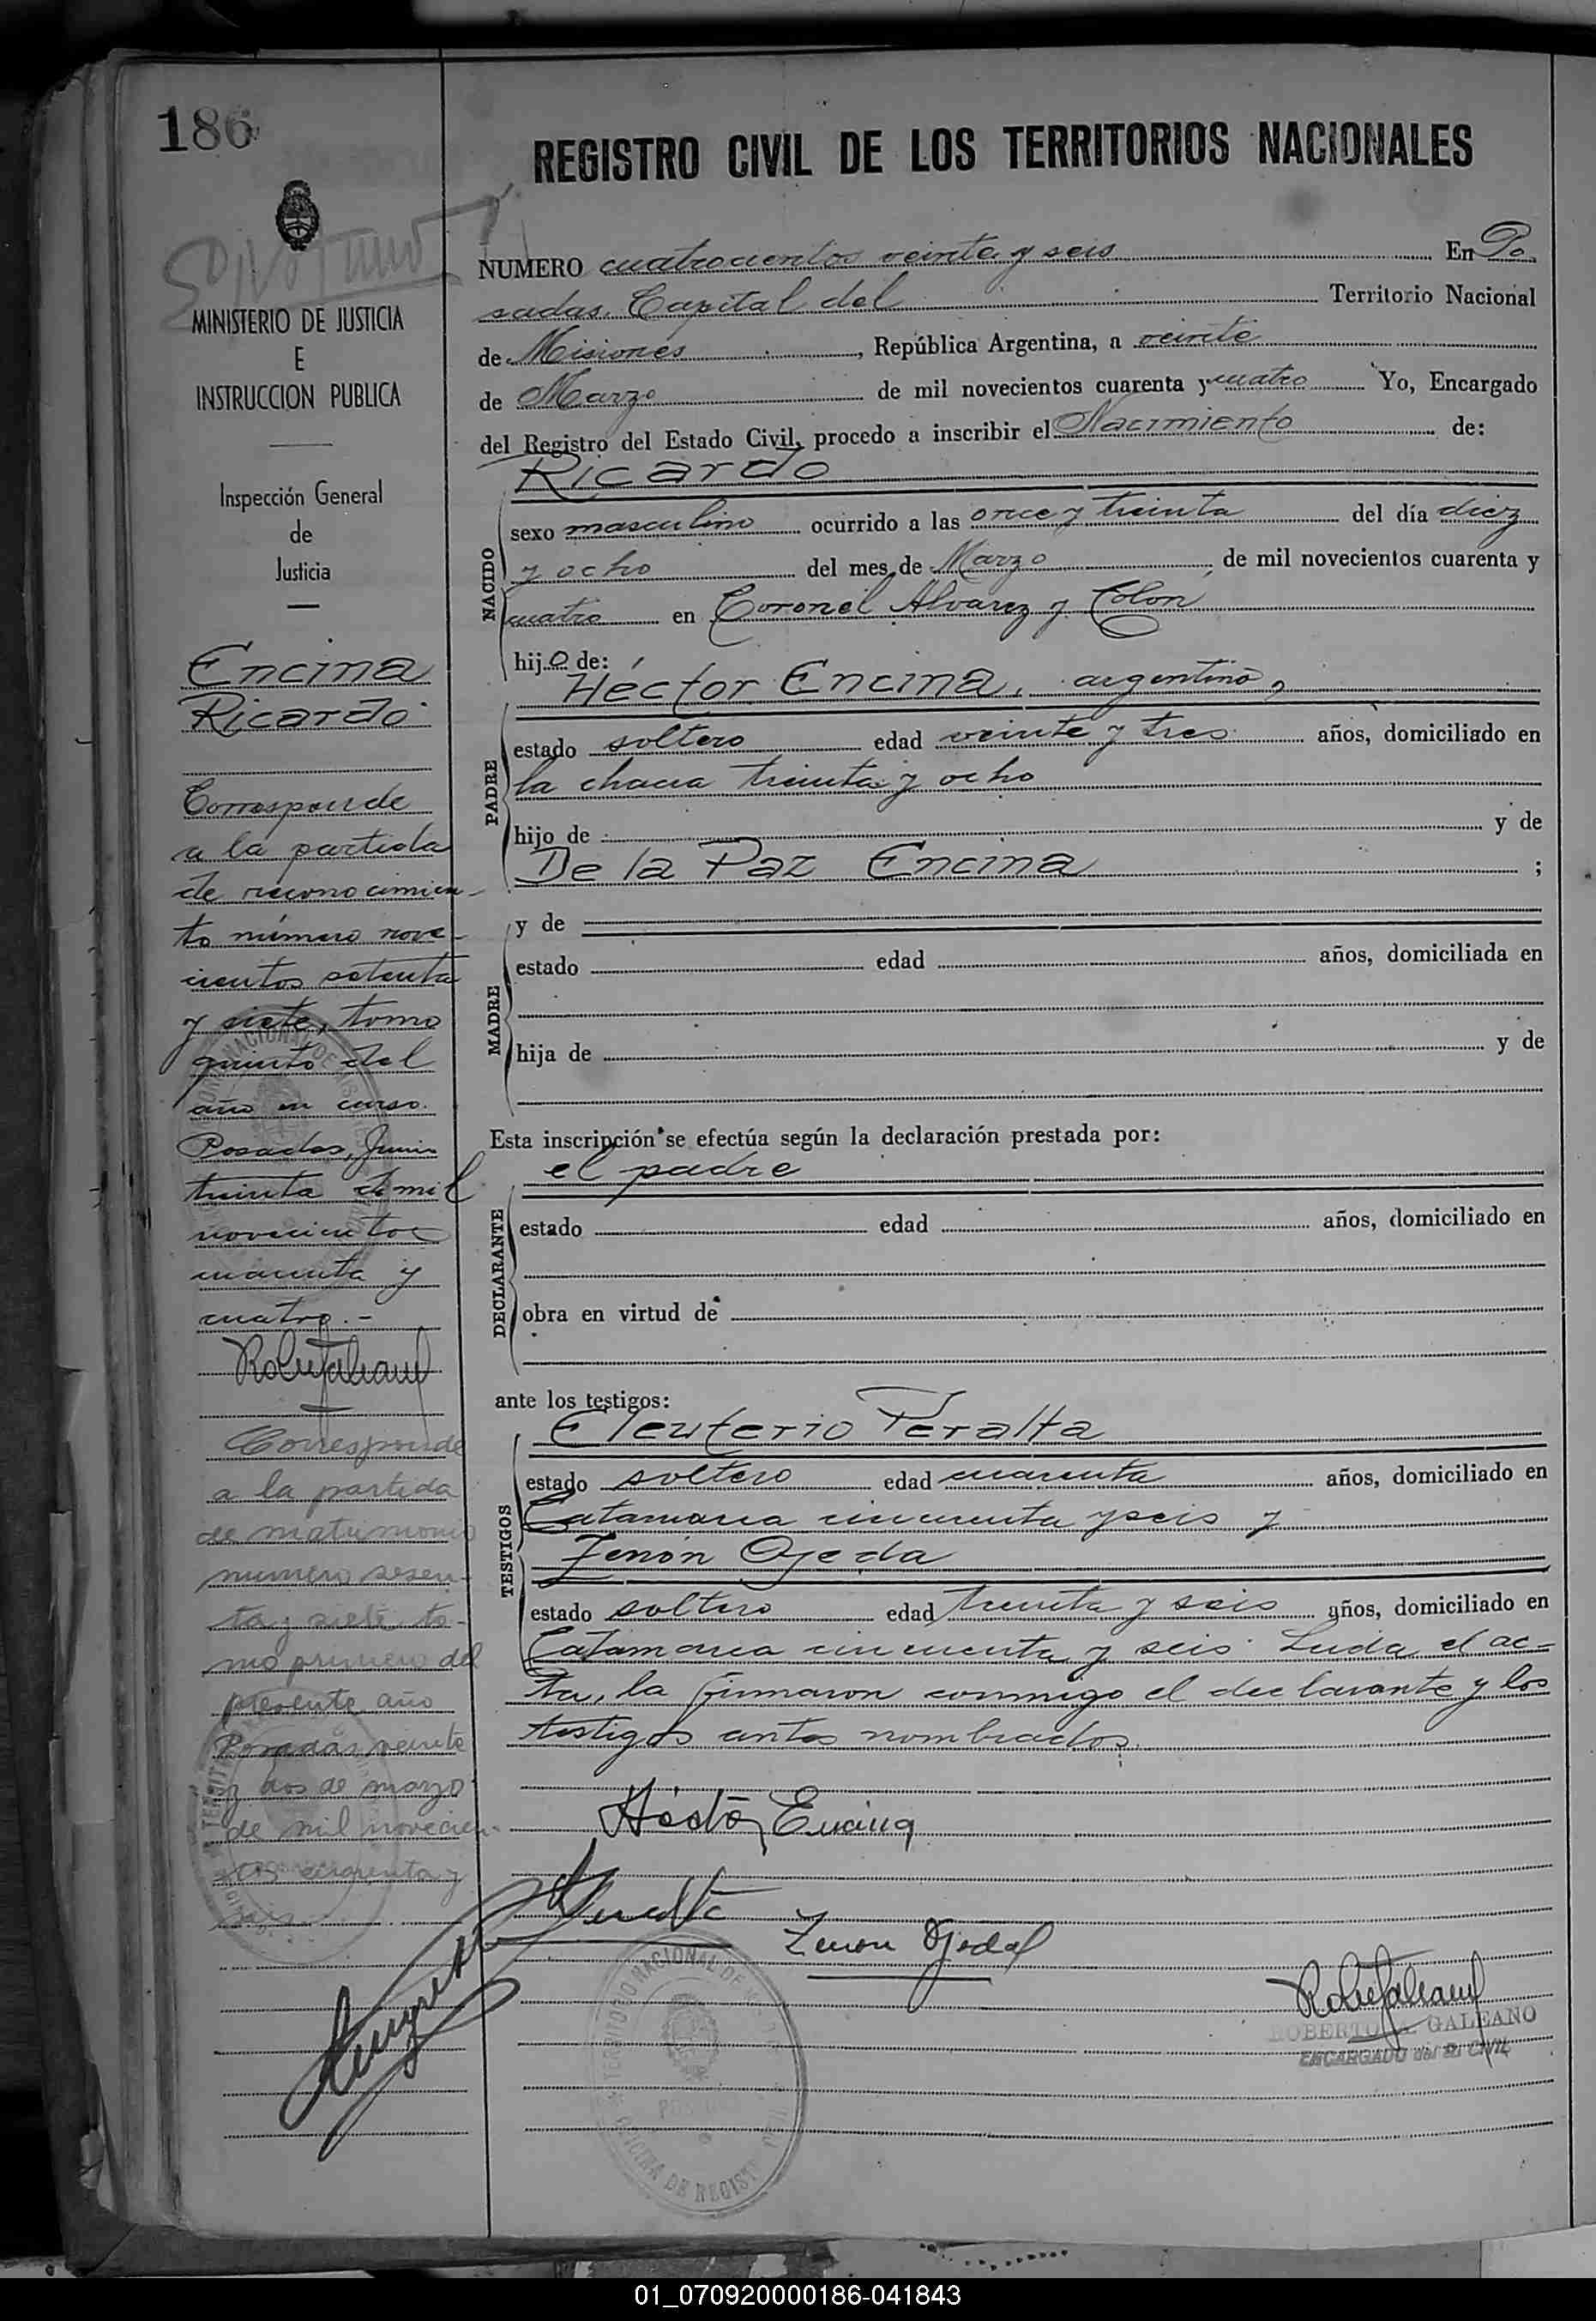 186
REGISTRO CIVIL DE LOS TERRITORIOS NACIONALES
MINISTERIO DE JUSTICIA
E
INSTRUCCION PUBLICA
Inspección General
de
Justicia
Encina
Ricardo
Corresponde
a la partida
de reconocimien-
to número nove-
cientos setenta
y siete, tomo
quinto del
año en curso.
Posadas, Junio
treinta de mil
novecientos
cuarenta y
cuatro.-
Corresponde
a la partida
de matrimonio
numero sesen-
ta y siete to-
mo primero del
presente año
Posadas, veinte
y dos de marzo
de mil novecien-
tos cuarenta y
NUMERO cuatrocientos veinte y seis En Po
sadas, Capital del Territorio Nacional
de Misiones, República Argentina, a veinte
de Marzo de mil novecientos cuarenta y cuatro Yo, Encargado
del Registro del Estado Civil, procedo a inscribir el Nacimiento de:
Ricardo
NACIDO
sexo masculino ocurrido a las once y treinta del día diez
y ocho del mes de Marzo de mil novecientos cuarenta y
cuatro en Coronel Alvarez y Colón
hijo de:
Héctor Encina, argentino,
PADRE
estado soltero edad veinte y tres años, domiciliado en
la chacra treinta y ocho
hijo de y de
De la Paz Encina ;
y de
MADRE
estado edad años, domiciliada en
hija de y de
Esta inscripción se efectúa según la declaración prestada por:
el padre
DECLARANTE
estado edad años, domiciliado en
obra en virtud de
ante los testigos:
Eleuterio Peralta
TESTIGOS
estado soltero edad cuarenta años, domiciliado en
Catamarca cincuenta y seis y
Zenón Ojeda
estado soltero edad treinta y seis años, domiciliado en
Catamarca cincuenta y seis. Leida el ac=
ta, la firmaron conmigo el declarante y los
testigos antes nombrados.
Héctor Encina
Peralta
Zenon Ojeda
ROBERTO A. GALEANO
ENCARGADO del R. CIVIL
01_070920000186-041843